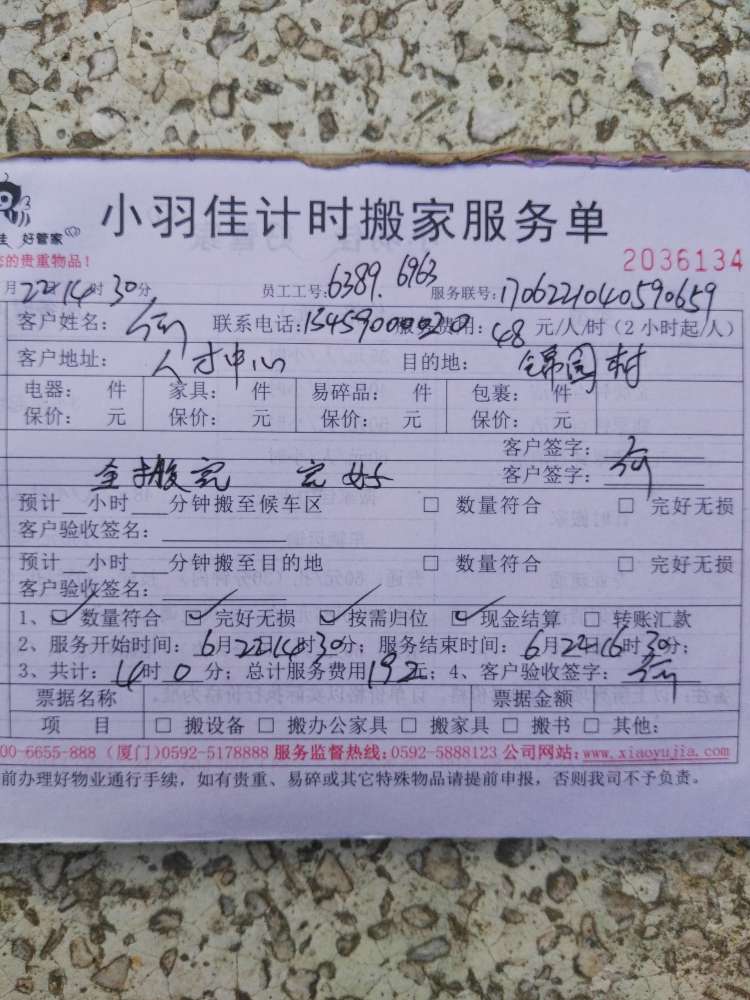 小羽佳计时搬家服务单
佳 好管家
您的贵重物品！
2036134
月22日14时30分 员工工号：6389. 6963 服务联号：1706221040590659
客户姓名： 联系电话：13459000020 服务费用：48元/人/时（2小时起/人）
客户地址：人才中心 目的地：锦园村
电器： 件 家具： 件 易碎品： 件 包裹： 件
保价： 元 保价： 元 保价： 元 保价： 元
客户签字：
全搬完 完好 客户签字：
预计__小时___分钟搬至候车区 □ 数量符合 □ 完好无损
客户验收签名：
预计__小时___分钟搬至目的地 □ 数量符合 □ 完好无损
客户验收签名：
1、☑ 数量符合 ☑ 完好无损 ☑ 按需归位 ☑ 现金结算 □ 转账汇款
2、服务开始时间：6月22日14时30分；服务结束时间：6月22日16时30分；
3、共计：4时0分；总计服务费用192元；4、客户验收签字：
票据名称 票据金额
项 目 □ 搬设备 □ 搬办公家具 □ 搬家具 □ 搬书 □ 其他：
00-6655-888（厦门）0592-5178888 服务监督热线：0592-5888123 公司网站：www.xiaoyujia.com
前办理好物业通行手续，如有贵重、易碎或其它特殊物品请提前申报，否则我司不予负责。